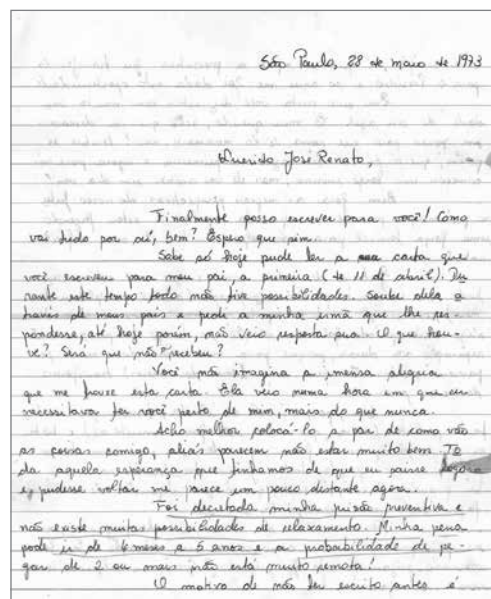 São Paulo, 28 de maio de 1973
Querido José Renato,
Finalmente posso escrever para você! Como
vai tudo por aí, bem? Espero que sim.
Sabe só hoje pude ler a carta que
você escreveu para meu pai, a primeira (de 11 de abril). Du
rante este tempo todo não tive possibilidades. Soube dela a
través de meus pais e pedi a minha irmã que lhe res-
pondesse, até hoje porém, não veio resposta sua. O que hou-
ve? Será que não recebeu?
Você não imagina a imensa alegria
que me trouxe esta carta. Ela veio numa hora em que eu
necessitava ter você perto de mim, mais do que nunca.
Acho melhor colocá-lo a par de como vão
as coisas comigo, aliás parecem não estar muito bem. To
da aquela esperança que tinhamos de que eu saisse logo
e pudesse voltar me parece um pouco distante agora.
Foi decretada minha prisão preventiva e
não existe muitas possibilidades de relaxamento. Minha pena
pode ir de 6 meses a 5 anos e a probabilidade de pe-
gar de 2 ou mais não está muito remota!
O motivo de não ter escrito antes é